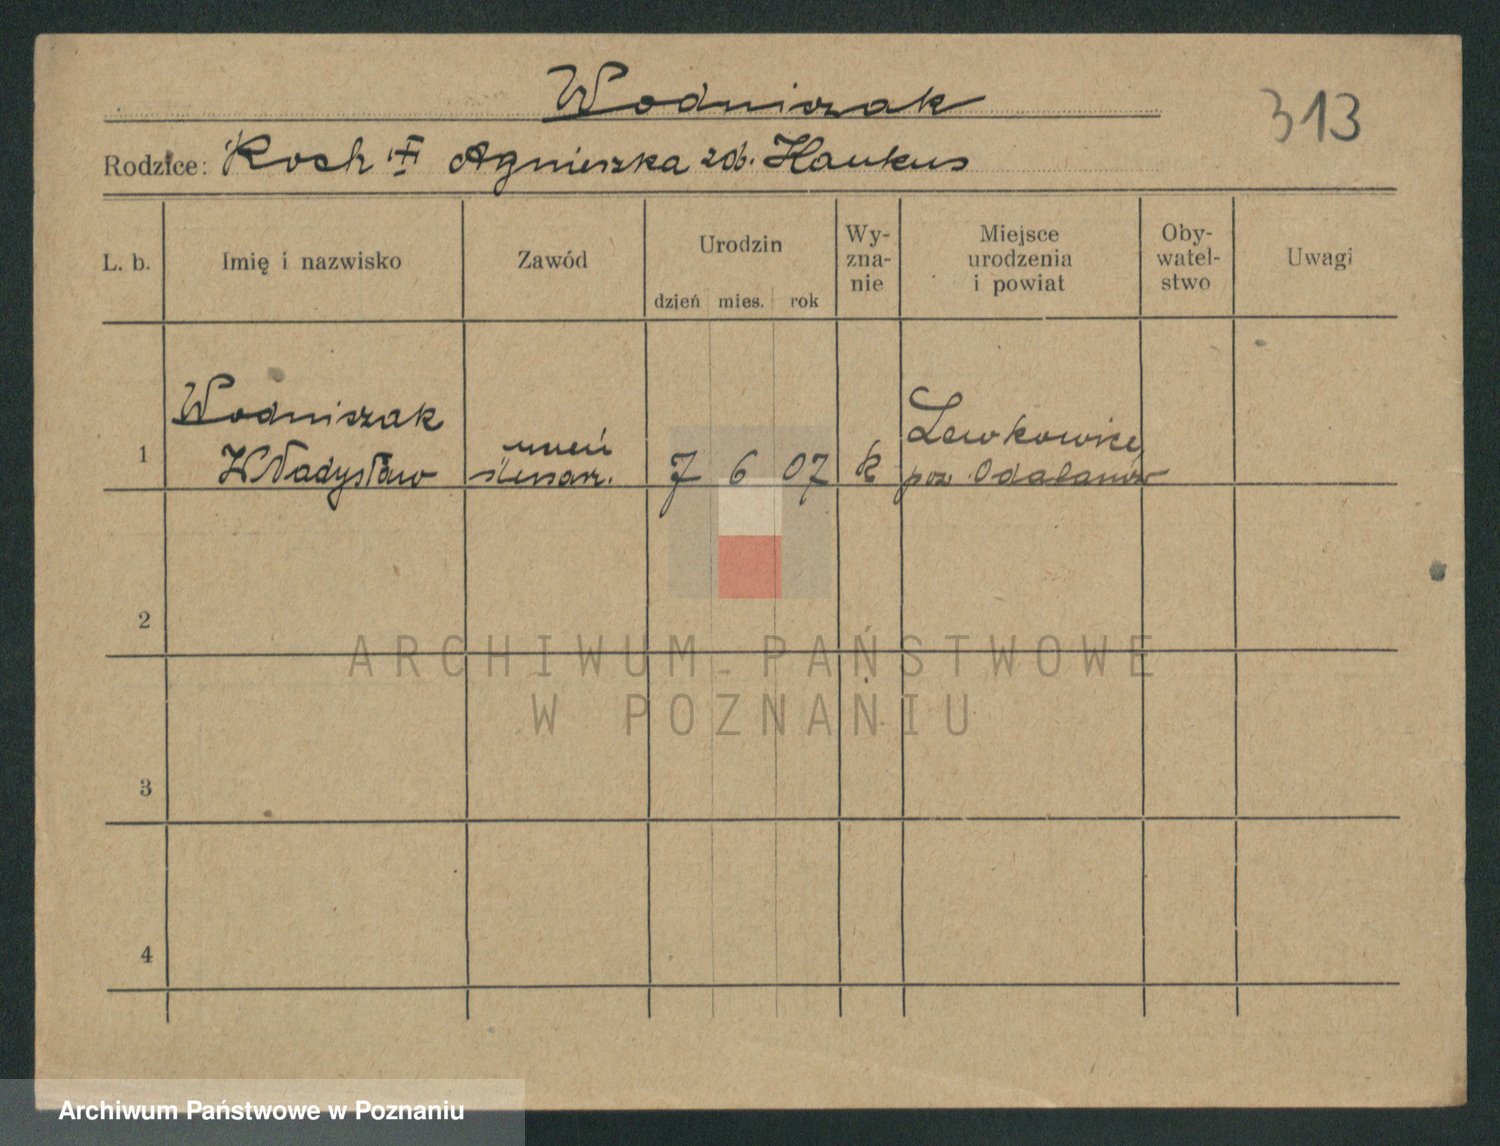 Wodniszak
313
Rodzice: Roch i Agnieszka zdb. Haukus
L. b.
Imię i nazwisko
Zawód
Urodzin
dzień mies. rok
Wy-
zna-
nie
Miejsce
urodzenia
i powiat
Oby-
watel-
stwo
Uwagi
1
Wodniszak
Władysław
uczeń
ślusar.
7 6 07
k
Lewkowice
pow. Odalanów
2
3
4
ARCHIWUM PAŃSTWOWE
W POZNANIU
Archiwum Państwowe w Poznaniu